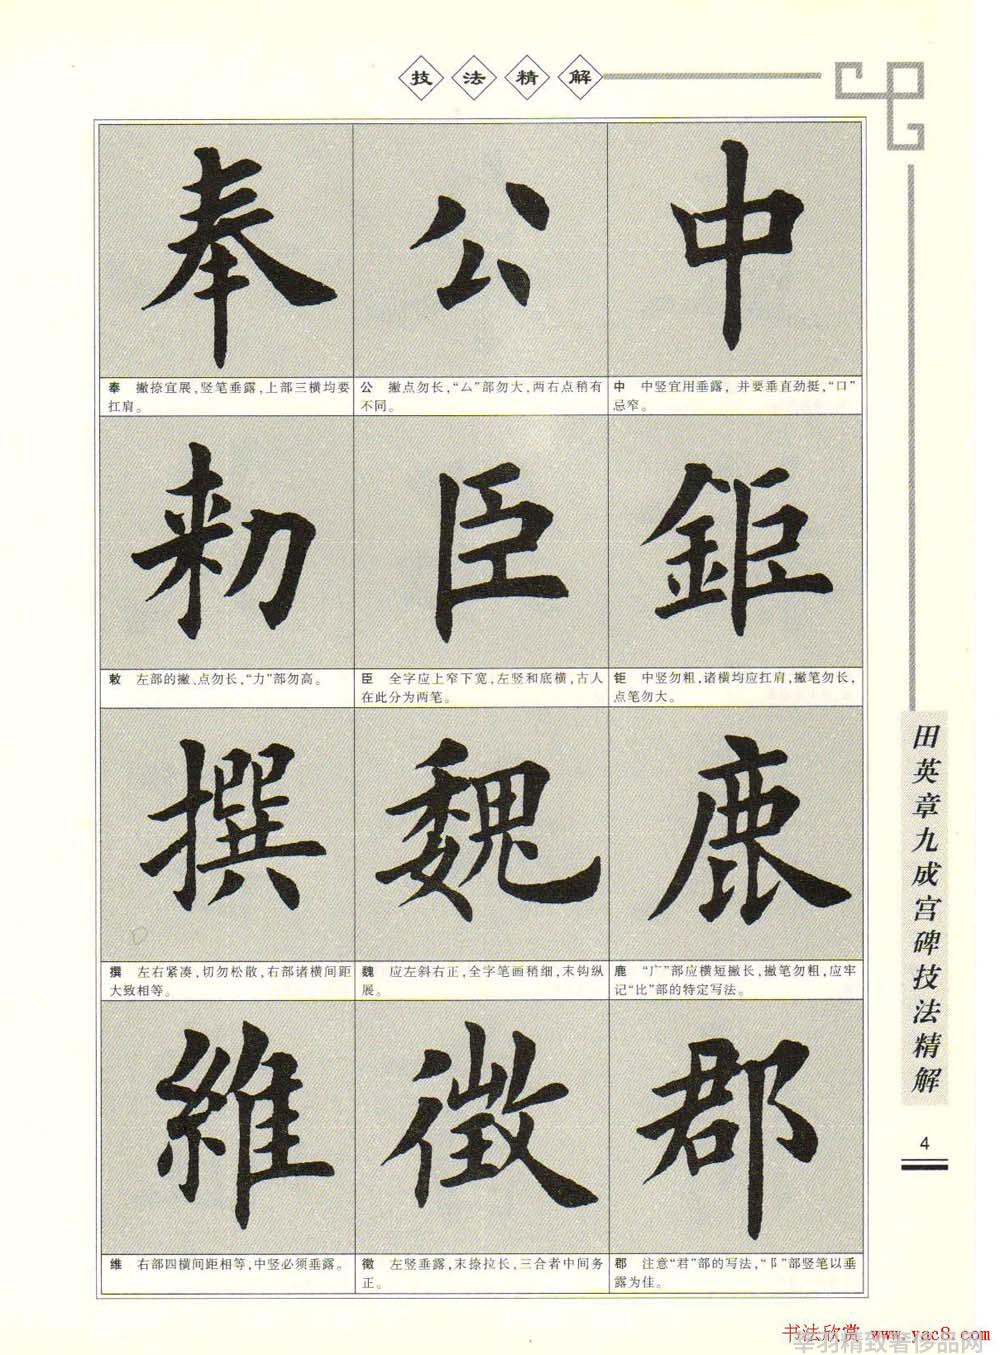 技法精解
奉公中
奉 撇捺宜展,竖笔垂露,上部三横均要
扛肩。
公 撇点勿长,“厶”部勿大,两右点稍有
不同。
中 中竖宜用垂露,并要垂直劲挺,“口”
忌窄。
勑臣鉅
敕 左部的撇、点勿长,“力”部勿高。
臣 全字应上窄下宽,左竖和底横,古人
在此分为两笔。
钜 中竖勿粗,诸横均应扛肩,撇笔勿长,
点笔勿大。
撰魏鹿
撰 左右紧凑,切勿松散,右部诸横间距
大致相等。
魏 应左斜右正,全字笔画稍细,末钩纵
展。
鹿 “广”部应横短撇长,撇笔勿粗,应牢
记“比”部的特定写法。
維徵郡
维 右部四横间距相等,中竖必须垂露。
徵 左竖垂露,末捺拉长,三合者中间务
正。
郡 注意“君”部的写法,“阝”部竖笔以垂
露为佳。
田英章九成宫碑技法精解
4
书法欣赏 www.yac8.com
华羽精致奢侈品网